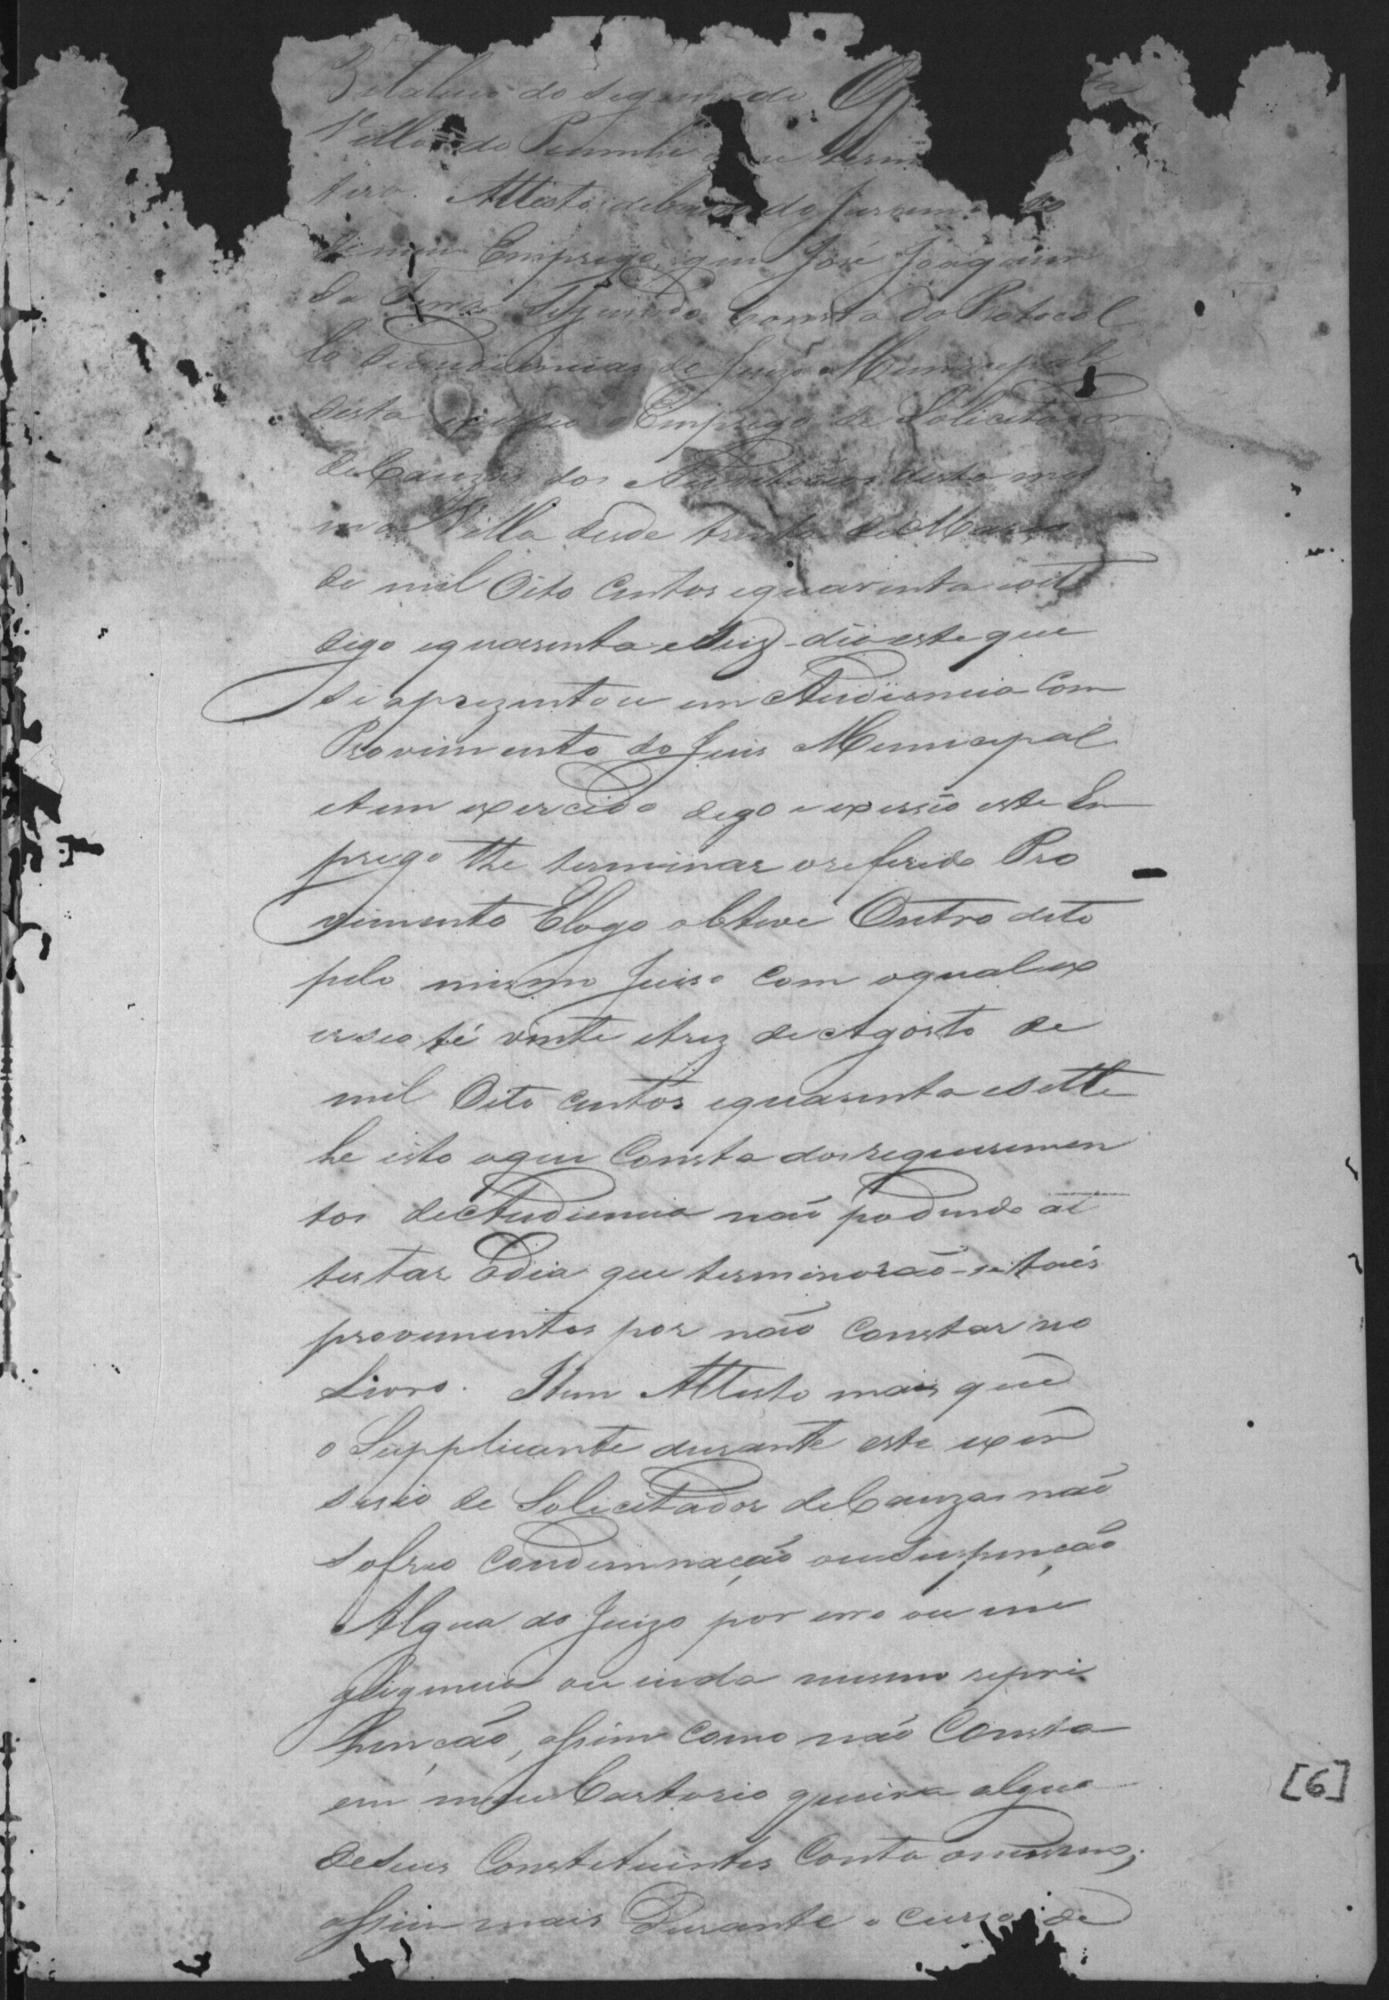 do segundo
Villa do Piumhi
Attesto debaixo do Juram
Emprego, que José Joaquim
Consta do Protocol
lo de audiencias do Juizo Municipal
desta Emprego de Solicitador
de Cauzas dos Auditorios desta mes
ma Villa desde trinta de Março
de mil Oito Centos equarenta eoito
digo equarenta e Seis dia este que
Se aprezentou em Audiencia Com
Provimento do Juis Municipal
etem exercido digo e exerceo este Em
prego the terminar oreferido Pro
vimento Elogo obteve Outro dito
pelo mesmo Juiso Com oqual ex
erseo té vinte etrez de Agosto de
mil Oito Centos equarenta esette
he isto oque Consta dos requerimen
tos de Audiencia não podendo at
testar Odia que terminarão-se taes
provimentos por não Constar no
Livro. Item Attesto mais que
o Supplicante durante este exer
sisio de Solicitador de Cauzas não
sofreo Condemnação ou Suspenção
Algua do Juizo por erro ou ne
gligencia ou inda mesmo repri
henção, assim como não Consta
em meu Cartorio queixa algua
deseus Constituintes Contra omesmo;
assim mais Durante o curso de
[6]